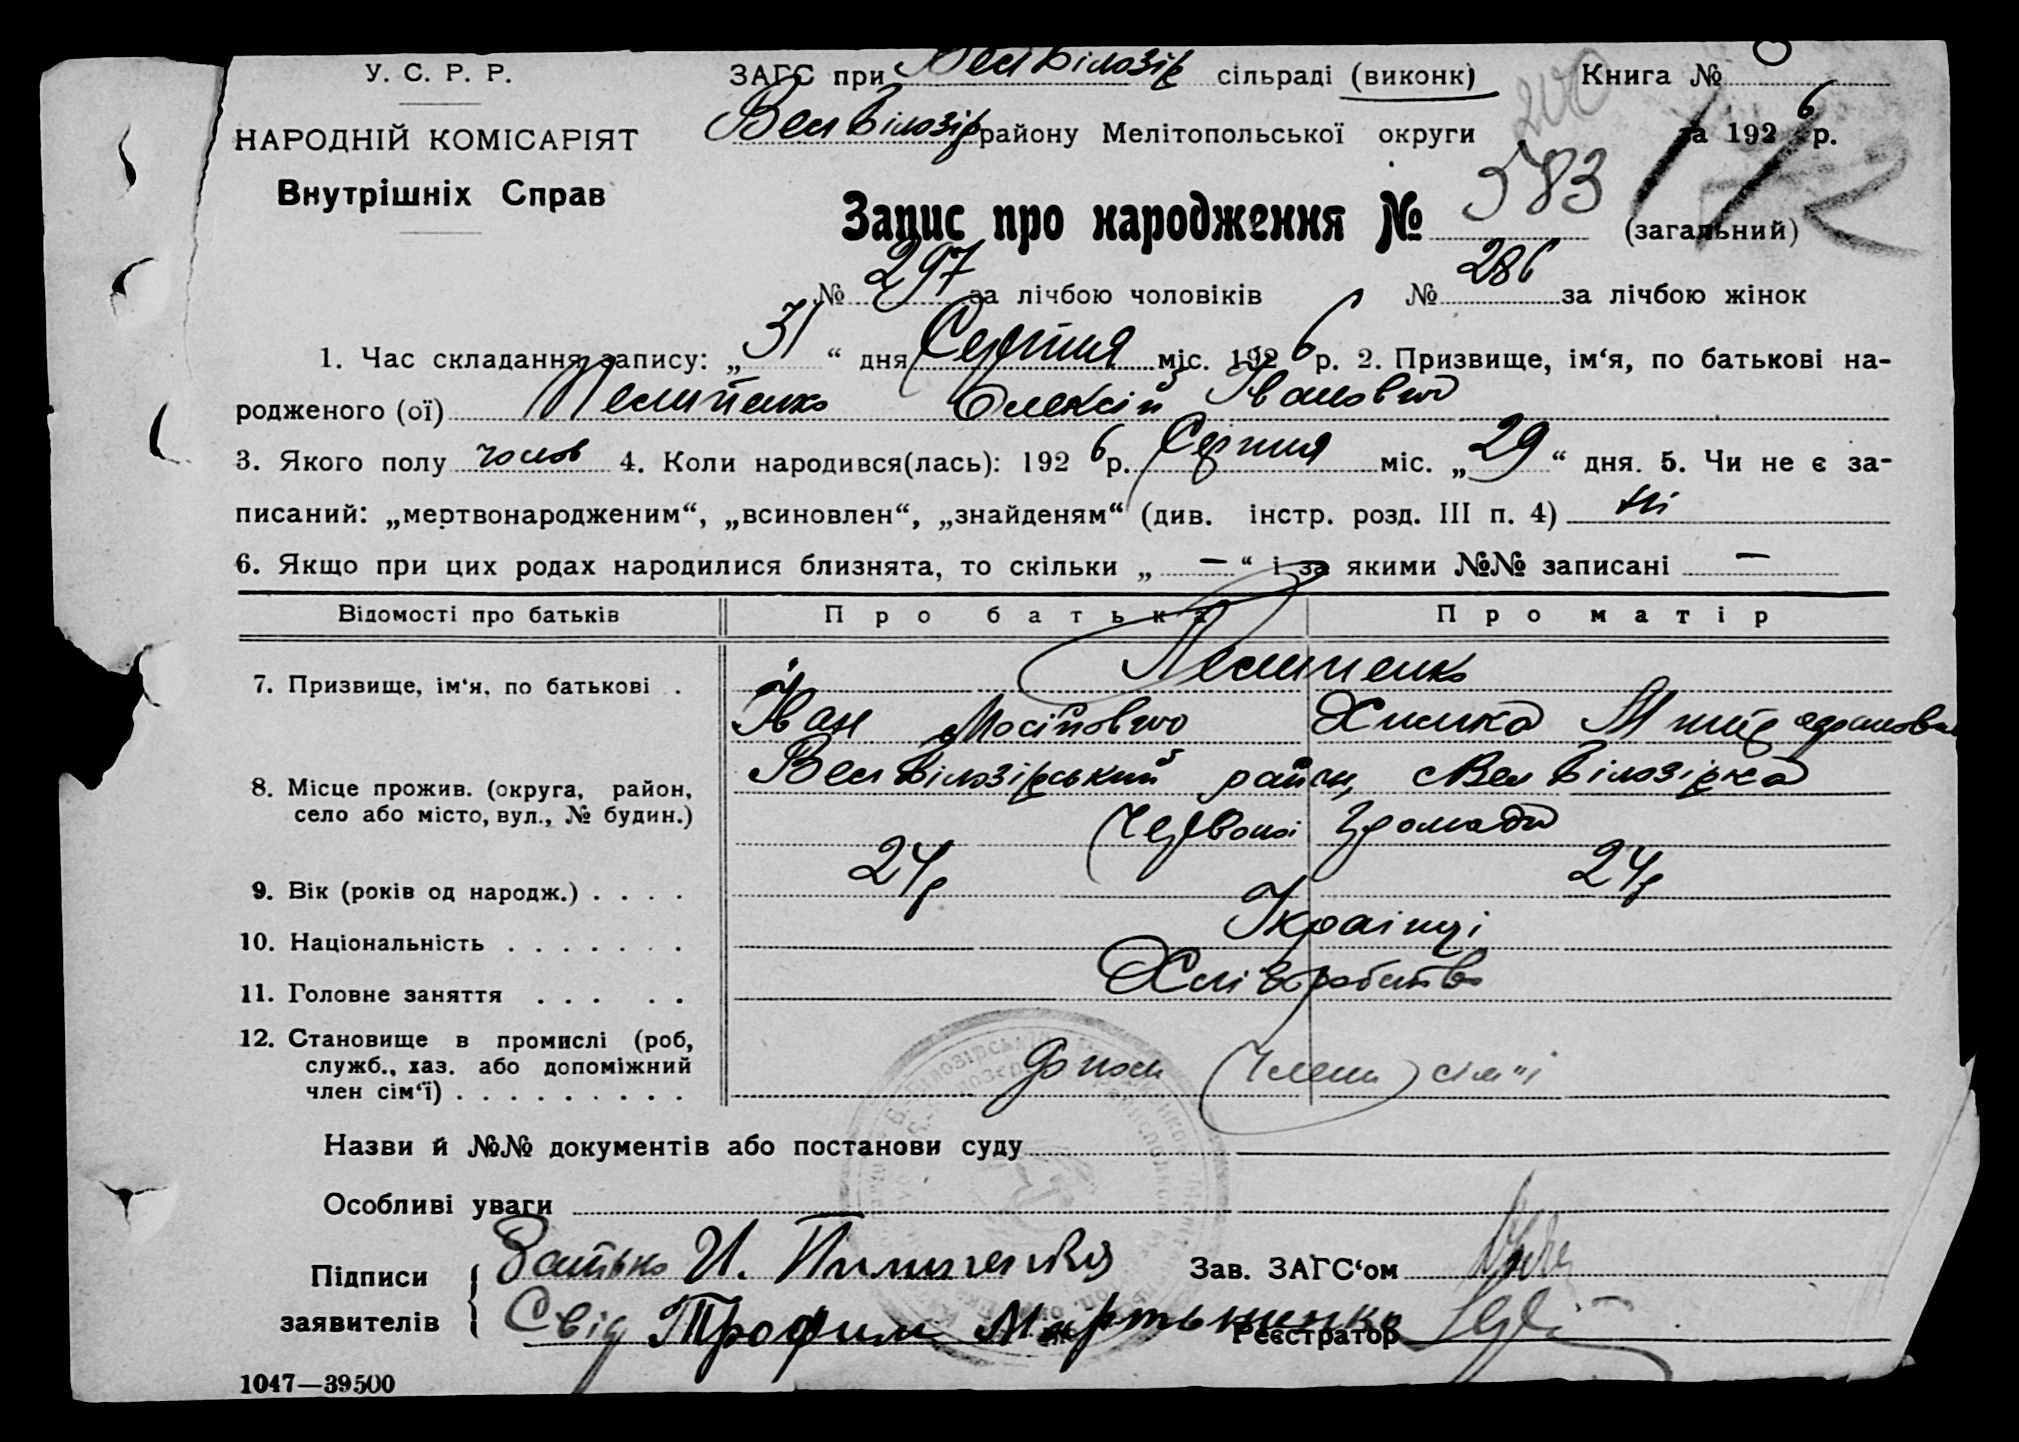 У. С. Р. Р.
НАРОДНІЙ КОМІСАРІЯТ
Внутрішніх Справ
ЗАГС при Вел Білозір сільраді (виконк)
Книга №
Вел Білозір району Мелітопольської округи
за 1926 р.
Запис про народження № 583 (загальний)
№ 297 за лічбою чоловіків № 286 за лічбою жінок
1. Час складання запису: „31“ дня Серпня міс. 1926 р. 2. Призвище, ім‘я, по батькові на-
родженого (ої) Пелипенко Олексій Іванович
3. Якого полу чолов 4. Коли народився(лась): 1926 р. Серпня міс. „29“ дня. 5. Чи не є за-
писаний: „мертвонародженим“, „всиновлен“, „знайденям“ (див. інстр. розд. III п. 4) ні
6. Якщо при цих родах народилися близнята, то скільки „ — “ і за якими №№ записані —
Відомості про батьків Про батька Про матір
7. Призвище, ім‘я, по батькові . Пелипенко
Іван Йосипович Химка
8. Місце прожив. (округа, район,
село або місто, вул., № будин.)
Вел Білозірський район, Вел Білозірка
Червоної громади
9. Вік (років од народж.) . . . . 24р 24р
10. Національність . . . . . . . Українці
11. Головне заняття . . . . . Хліборобство
12. Становище в промислі (роб,
служб., хаз. або допоміжний
член сім‘ї) . . . . . . . . .
Члени сім'ї
Назви й №№ документів або постанови суду
Особливі уваги
Підписи
заявителів
Батько И.
Свід Трофим Мартыненко
Зав. ЗАГС‘ом
Реєстратор
1047—39500